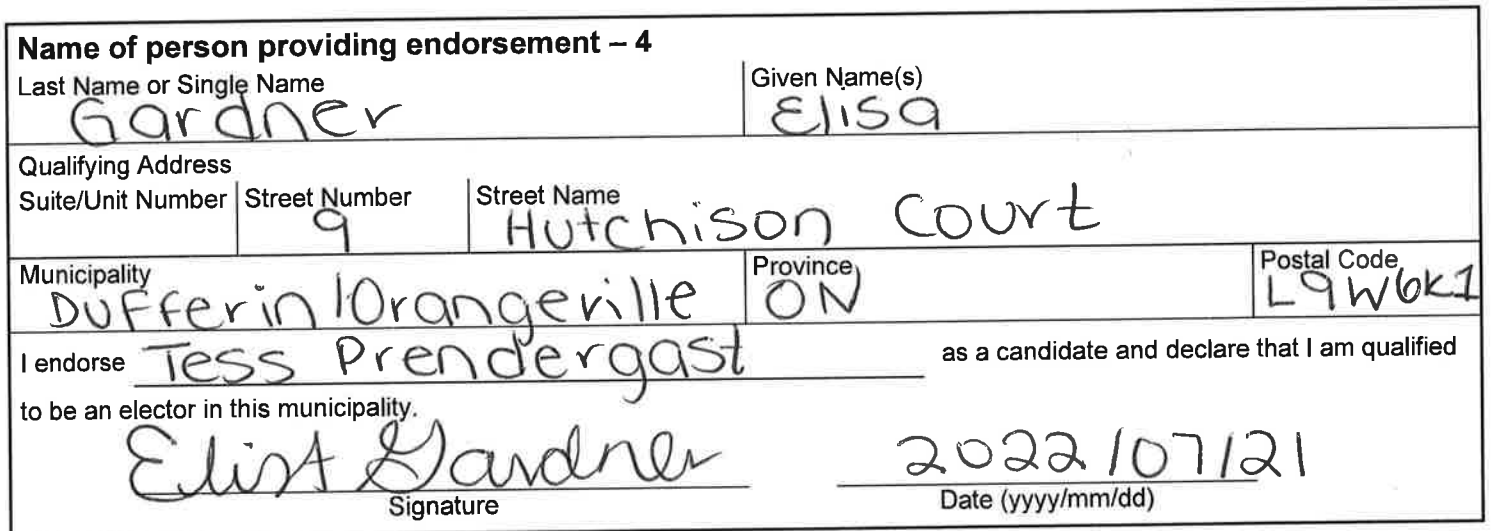 Name of person providing endorsement – 4
Last Name or Single Name Given Name(s)
Gardner Elisa
Qualifying Address
Suite/Unit Number Street Number Street Name
9 Hutchison Court
Municipality Province Postal Code
Dufferin/Orangeville ON L9W6K1
I endorse Tess Prendergast as a candidate and declare that I am qualified
to be an elector in this municipality.
Elisa Gardner 2022/07/21
Signature Date (yyyy/mm/dd)